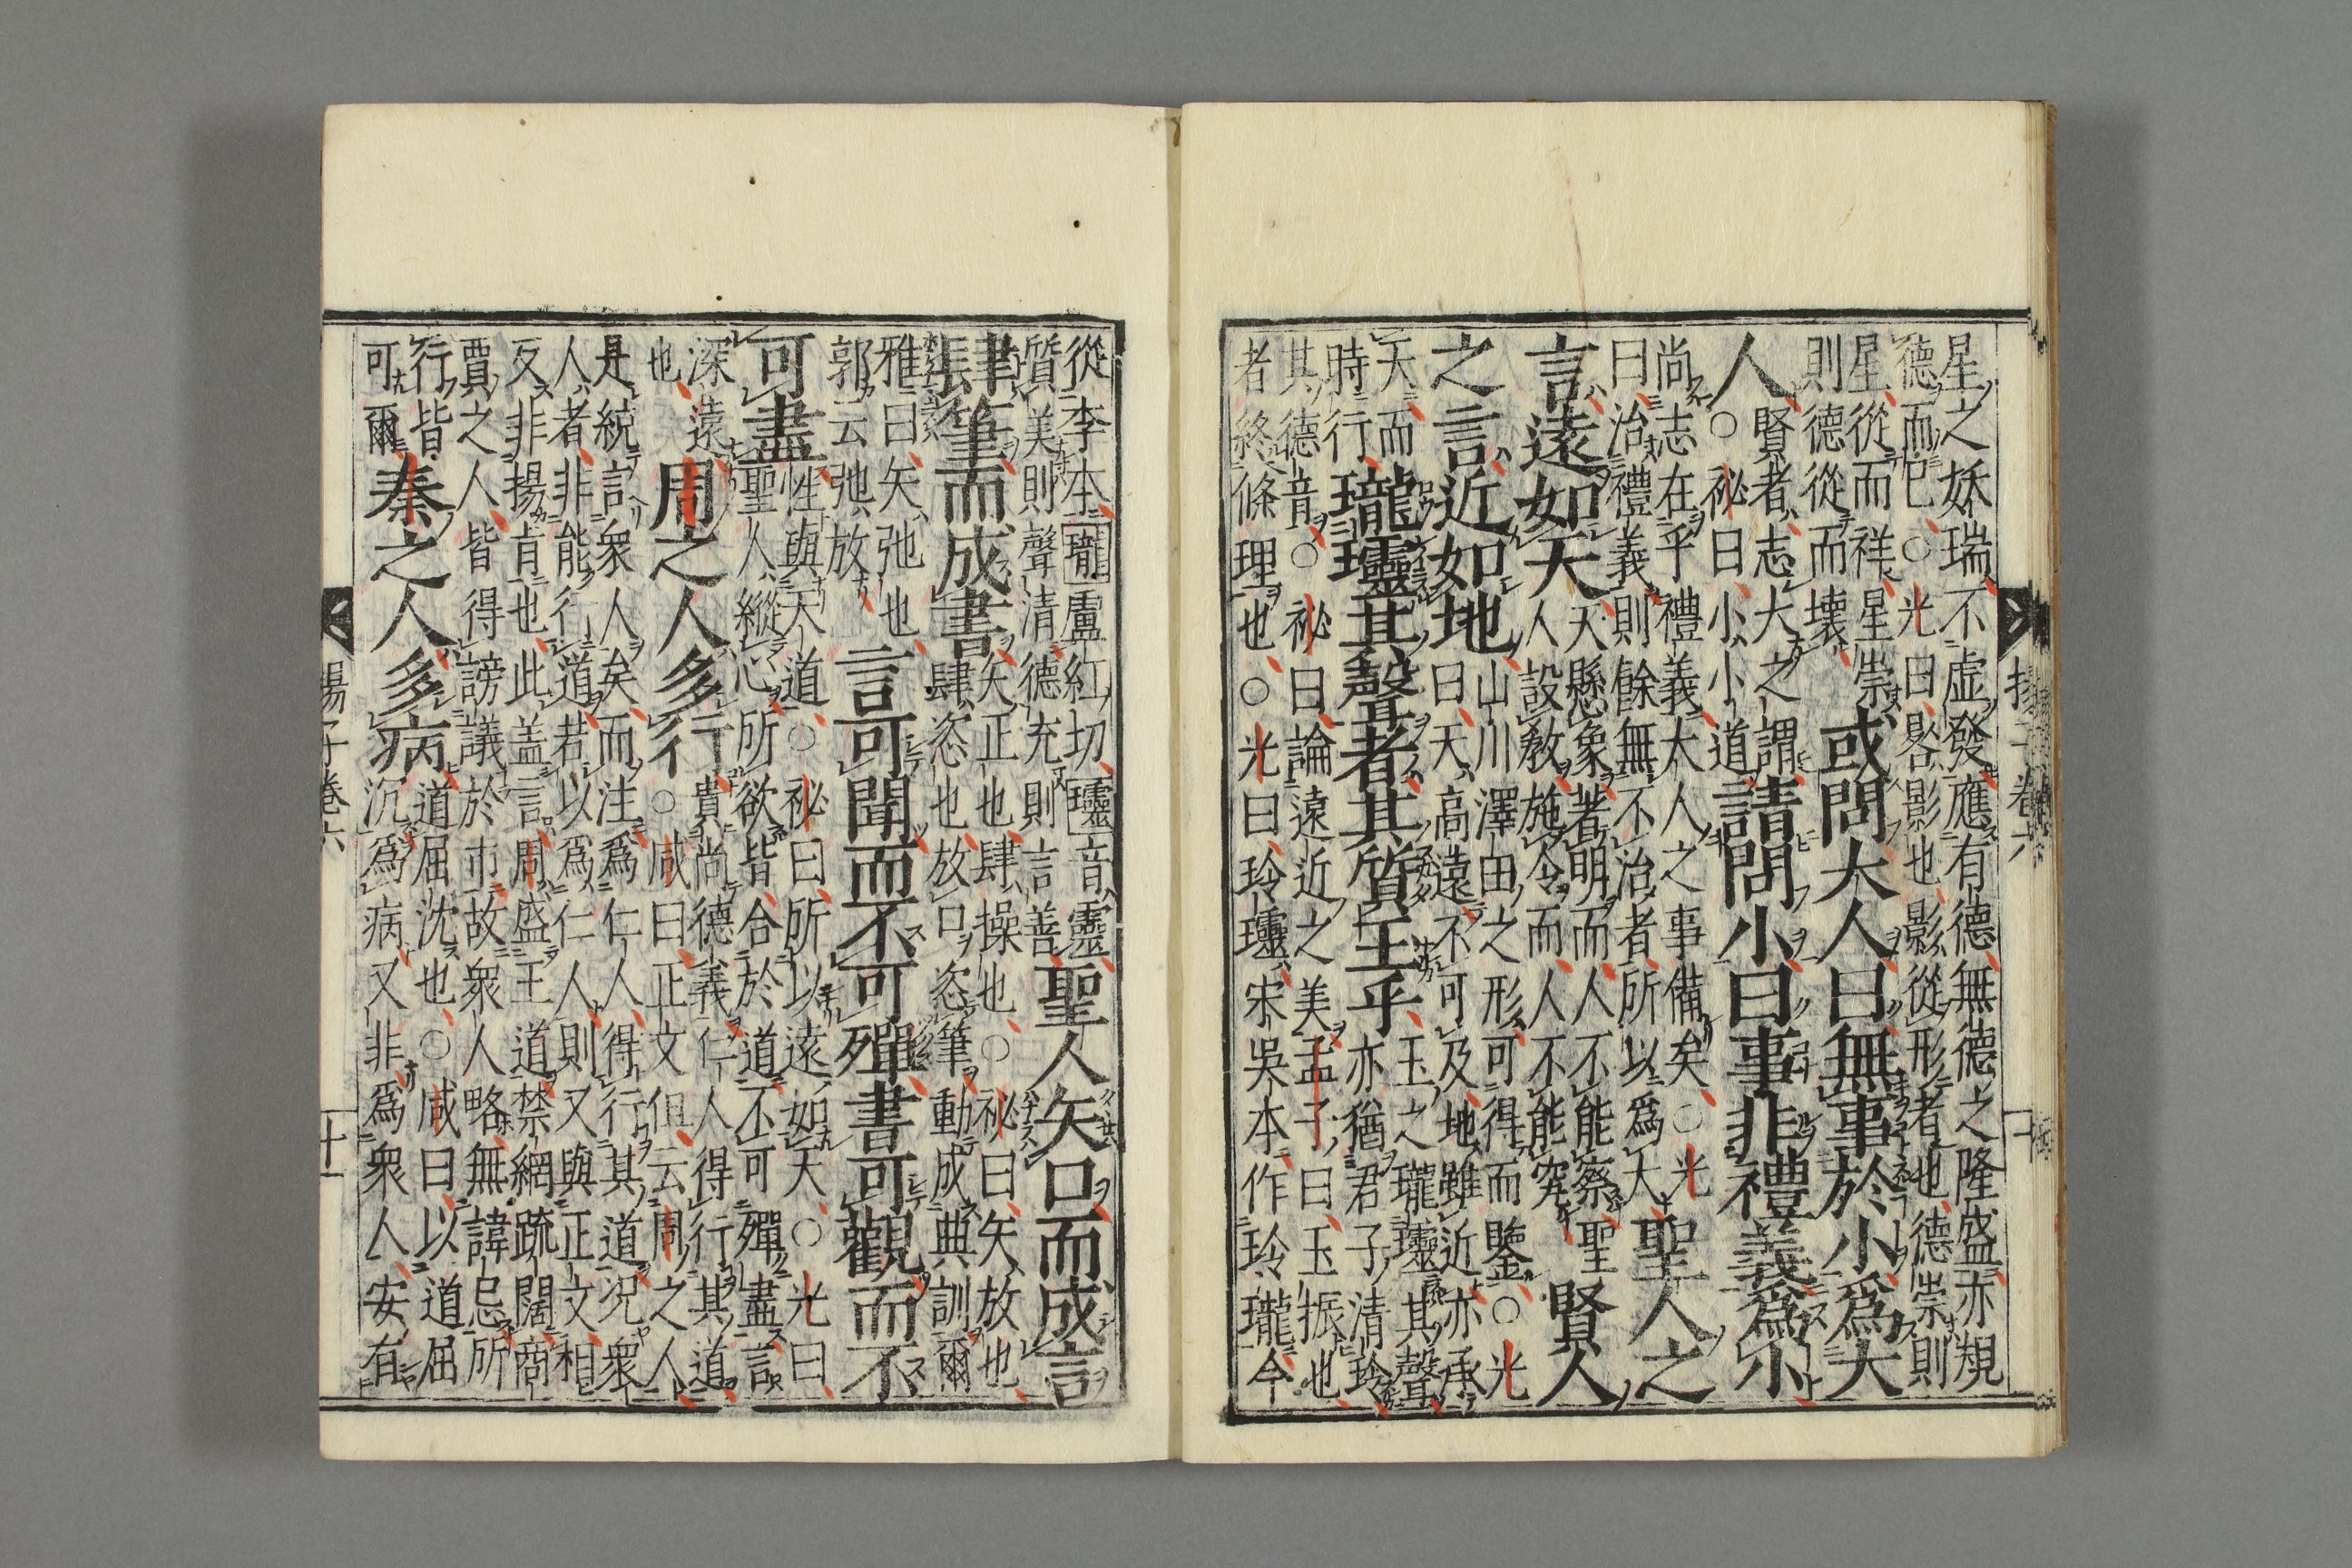 揚子卷六
星之妖瑞不虚發應有德無德之隆盛亦䂓
德而巳○光曰晷影也影從形者也德崇則
星從而祥星崇
則德從而壊
或問大人曰無事於小爲大
人
賢者志大之謂
○祕曰小小道
請問小曰事非禮義爲小
尚志在乎禮義大人之事備矣○光
曰治禮義則餘無不治者所以爲大
聖人之
言遠如天
天懸象著明而人不能察聖
人設敎施令而人不能究
賢人
之言近如地
山川澤由之形可得而鑒○光
曰天高遠不可及地雖近亦承
天而
時行
瓏𤫊其聲者其質玉乎
玉之瓏𤫊其聲
亦猶君子清玲
其德音○祕曰論遠近之美孟子曰玉振也
者終條理也○光曰玲𤫊宋吳本作玲瓏今
從李本瓏盧紅切𤫊音靈
質美則聲清德充則言善
聖人矢口而成言
肆筆而成書
矢正也肆操也○祕曰矢放也
肆恣也放口恣筆動成典訓爾
雅曰矢弛也
郭云弛放
言可聞而不可殫書可觀而不
可盡
性與天道○祕曰所以遠如天○光曰
聖人縱心所欲皆合於道不可殫盡言
深遠
也
周之人多行
貴尚德義仁人得行其道
○咸曰正文但云周之人
是統言衆人矣而注爲仁人得行其道況衆
人者非能行道若以爲仁人則又與正文相
反非揚肯也此盖言周盛王道禁網疏闊商
賈之人皆得謗議於市故衆人略無諱忌所
行皆
可爾
秦之人多病
道屈沈也○咸曰以道屈
沉爲病又非爲衆人安有
揚子卷六
十一